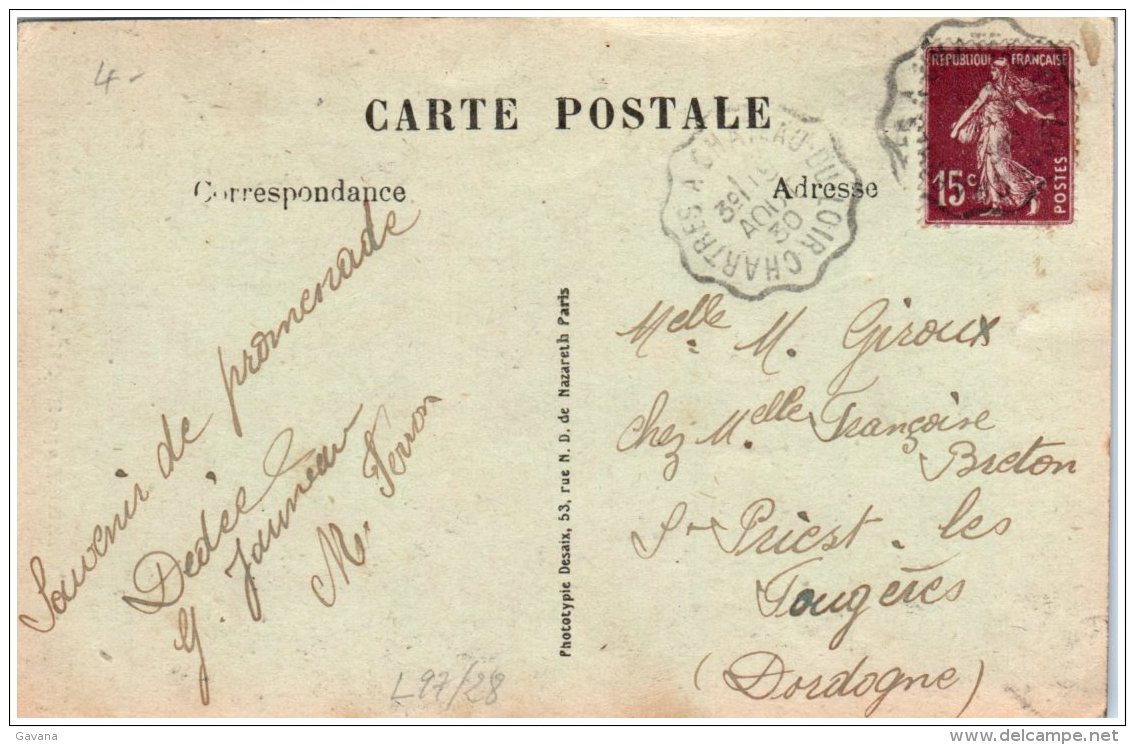 4-
CARTE POSTALE
Correspondance
Adresse
RÉPUBLIQUE FRANÇAISE
15c
POSTES
CHARTRES A CHATEAU-DU-LOIR
CHARTRES
AOUT
30
Souvenir de promenade
Dédée
G. Jauneau
M. Ferron
Phototypie Desaix, 53, rue N. D. de Nazareth Paris
Melle M. Giroux
chez Melle Françoise
Breton
St Priest. les
Fougères
(Dordogne)
L97/28
Gavana
www.delcampe.net